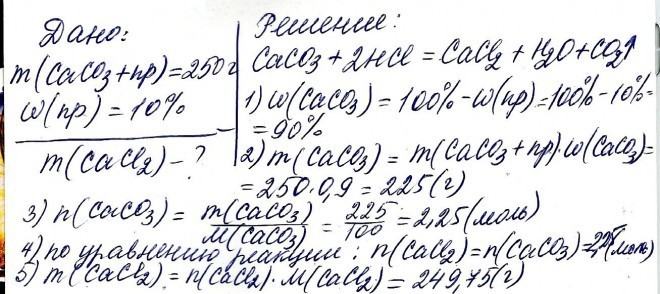 Дано:
m(CaCO3+пр)=250г
ω(пр)=10%
m(CaCl2)-?
Решение:
CaCO3+2HCl=CaCl2+H2O+CO2↑
1) ω(CaCO3)=100%-ω(пр)=100%-10%=
=90%
2) m(CaCO3)=m(CaCO3+пр)·ω(CaCO3)=
=250·0,9=225(г)
3) n(CaCO3)=m(CaCO3)/M(CaCO3)=225/100=2,25(моль)
4) по уравнению реакции: n(CaCl2)=n(CaCO3)=2,25(моль)
5) m(CaCl2)=n(CaCl2)·M(CaCl2)=249,75(г)